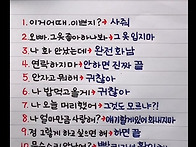 1. 이거어때. 이쁘지? → 사줘
2. 오빠. 그옷좋아하나봐 → 그옷입지마
3. 나 화 안났는데 → 완전 화남
4. 연락하지마 → 안하면 진짜 끝
5. 안자고 뭐해 → 귀찮아
6. 나 밥먹고올게 → 귀찮아
7. 나 오늘 머리했어 → 그것도 모르냐?!
8. 나 얼마만큼 사랑해? → 얘기할게있어 화내지마
9. 정 그렇게 하고 싶으면 해 → 하면 끝
10.